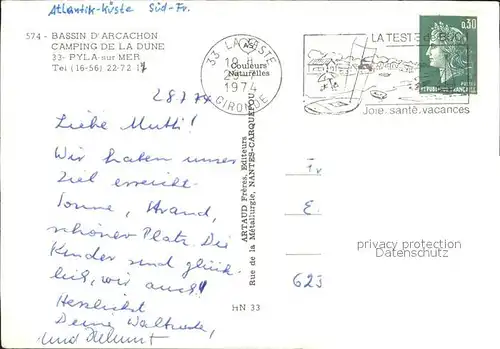 Atlantik-Küste Süd-Fr.
574 - BASSIN D'ARCACHON
CAMPING DE LA DUNE
33- PYLA-sur-MER
Tel (16-56) 22-72 17
33 LA TESTE
18 H
1974
GIRONDE
Couleurs
Naturelles
LA TESTE
Joie, santé, vacances
0,30
POSTES
REPUBLIQUE FRANÇAISE
28.7.74
Liebe Mutti!
Wir haben unser
Ziel erreicht.
Sonne, Strand,
schöner Platz. Die
Kinder sind glück-
lich, wir auch!
Herzlichst
Deine Waltraud,
und Helmut
ARTAUD Frères, Editeurs
Rue de la Métallurgie, NANTES-CARQUEFOU
HN 33
Fr
E
623
privacy protection
Datenschutz